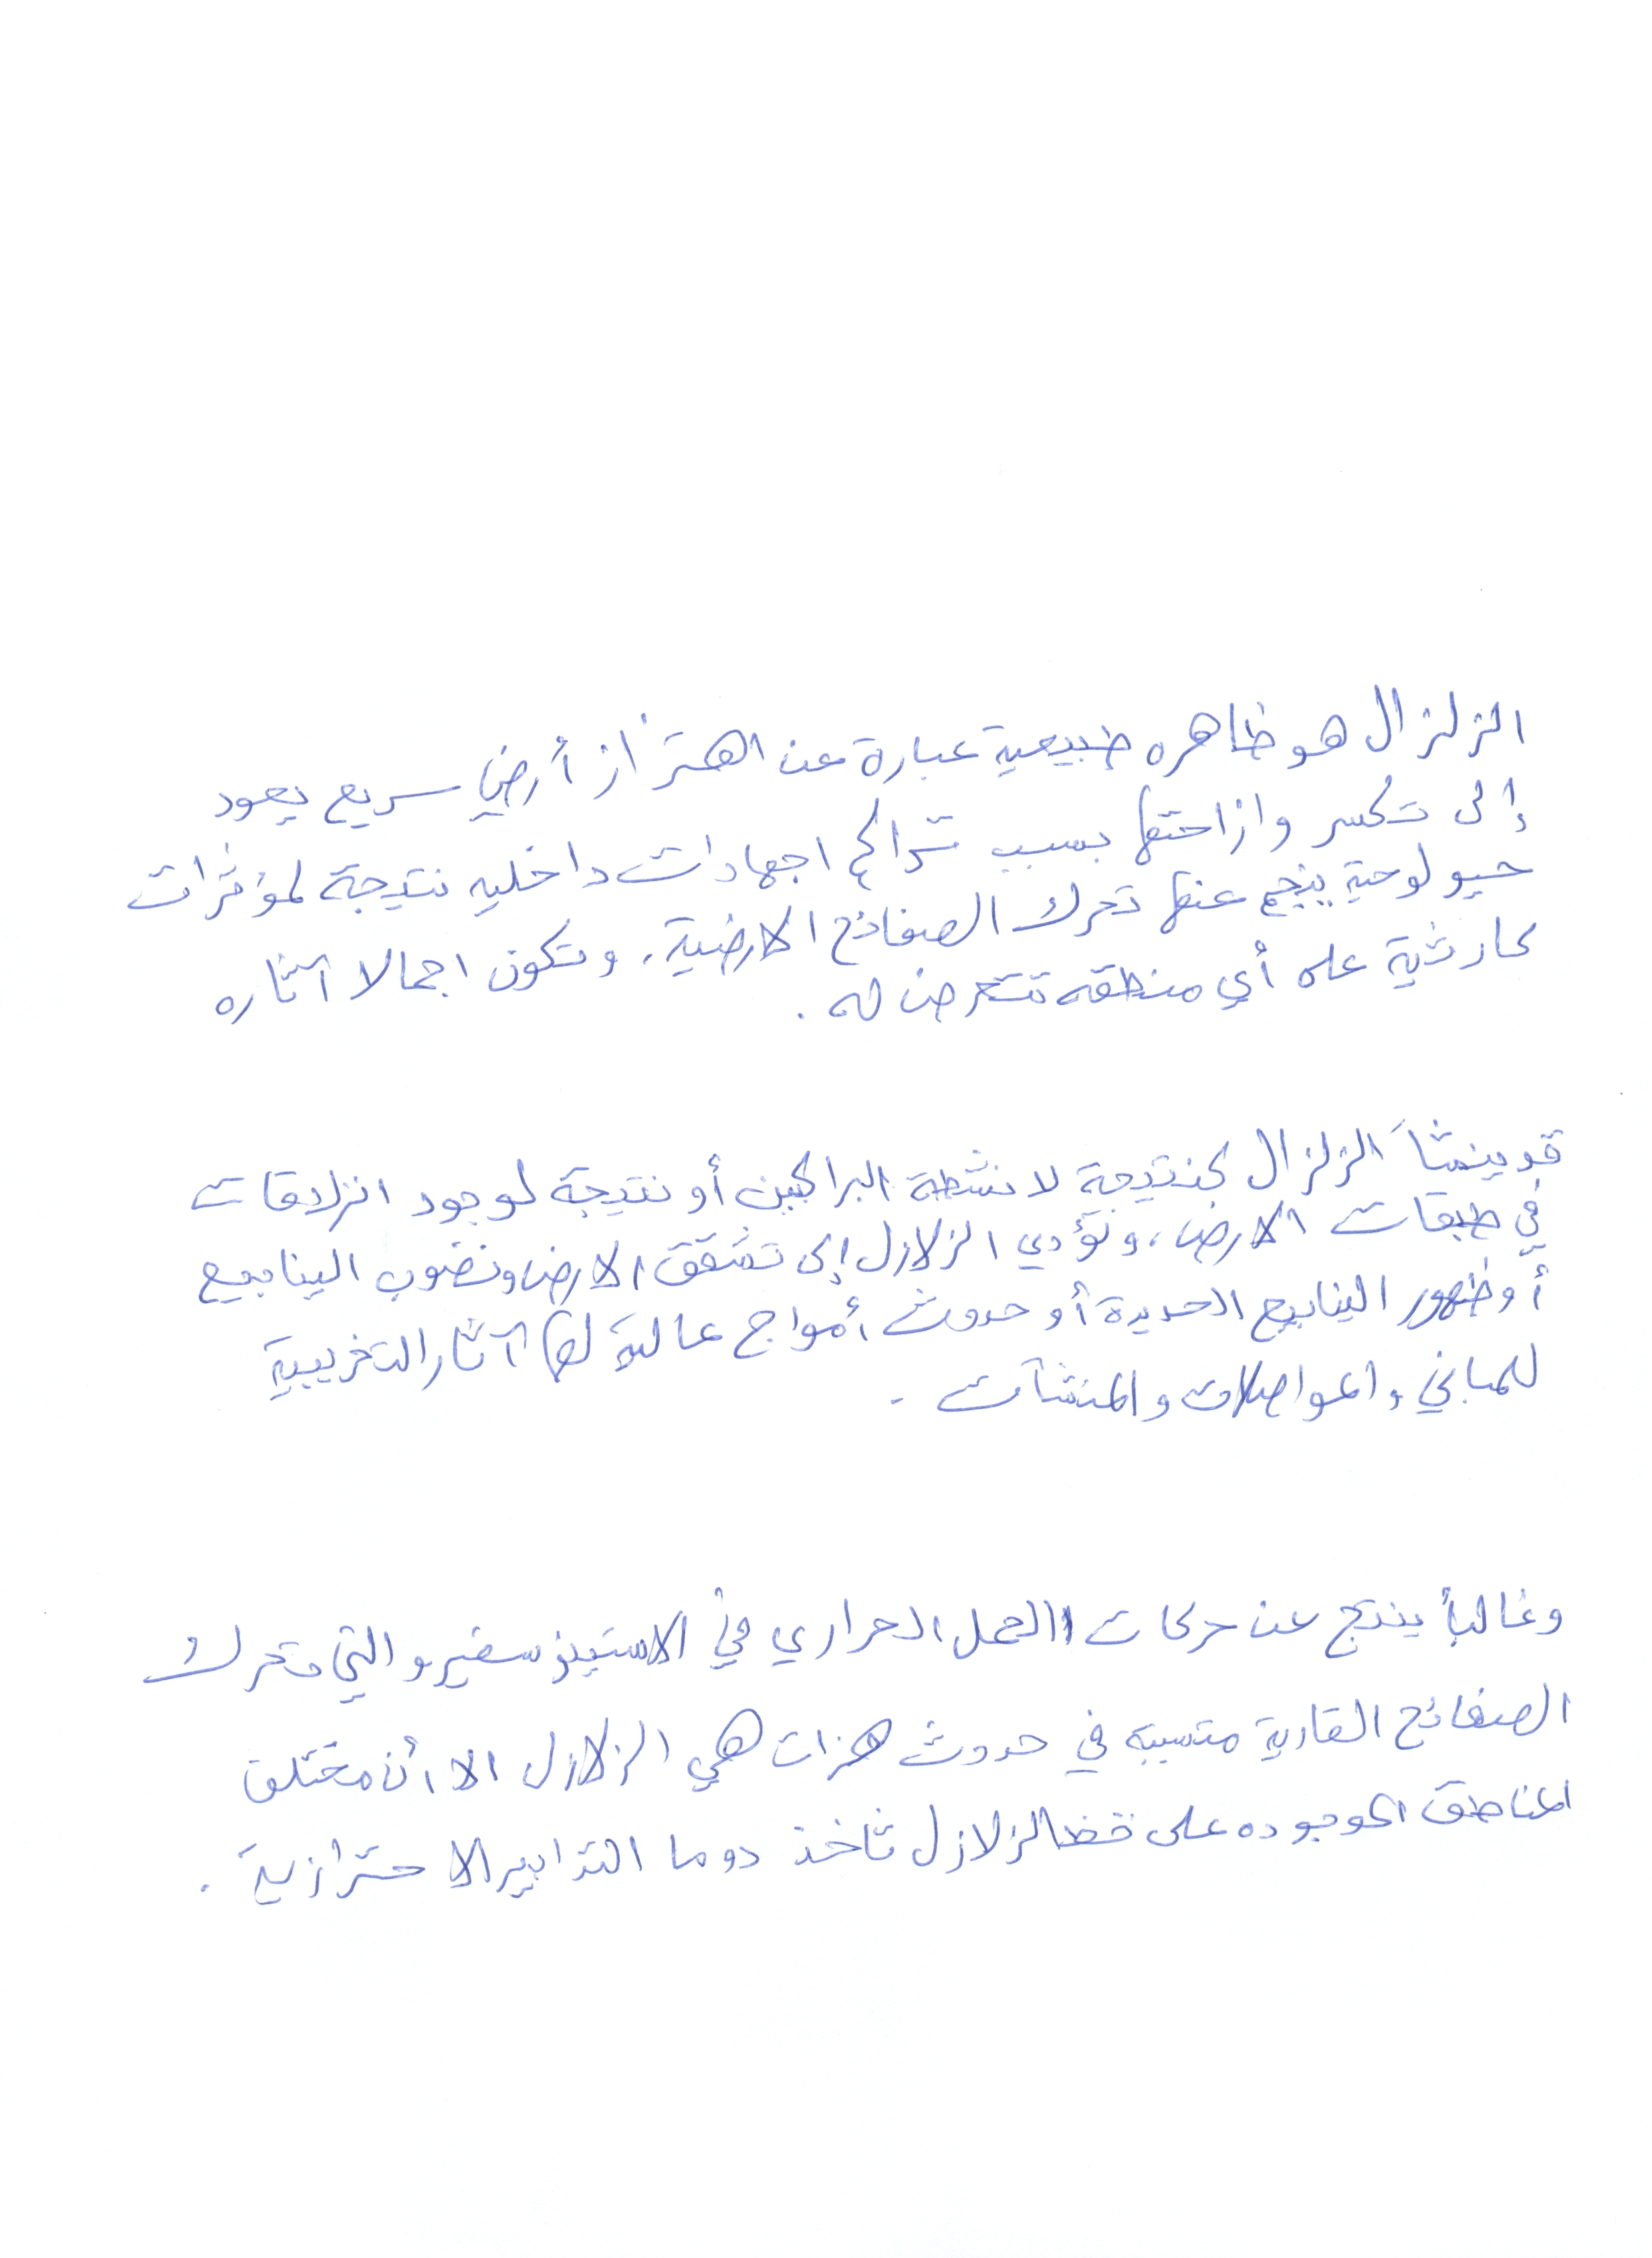 الزلزال هو ظاهره طبيعية عبارة عن اهتزاز أرضي سريع يعود
إلى تكسر وازاحتها بسبب تراكم اجهادات داخليه نتيجة لمؤثرات
جيولوجية ينجم عنها تحرك الصفائح الارضية. وتكون اجمالا آثاره
كارثية على أي منطقه تتعرض له.
قد ينشأ الزلزال كنتيجة لانشطة البراكين أو نتيجة لوجود انزلاقات
في طبقات الارض، وتؤدي الزلازل إلى تشقق الارض ونضوب الينابيع
أو ظهور الينابيع الجديدة أو حدوث أمواج عالية لها آثار التخريبية
للمباني والمواصلات والمنشآت.
وغالباً ينتج عن حركات الحمل الحراري في الاستينوسفير والتي تحرك
الصفائح القارية متسببه في حدوث هزات هي الزلازل الا أن مختلف
المناطق الموجوده على خط الزلازل تأخذ دوما التدابير الاحترازية.